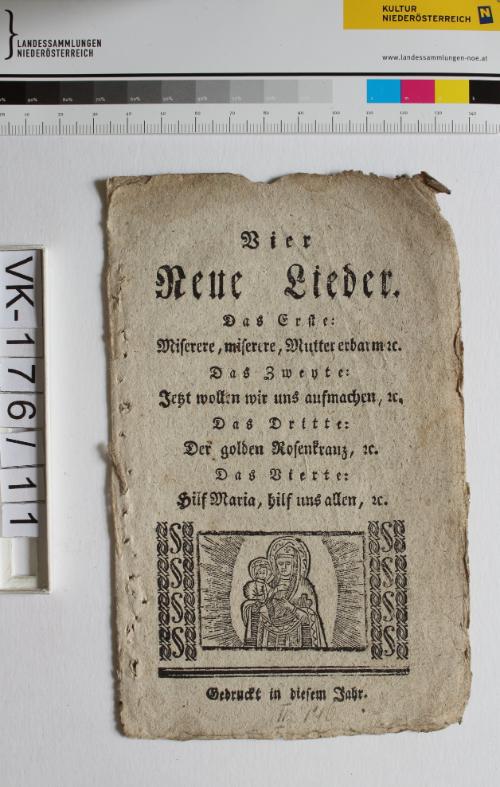 LANDESSAMMLUNGEN
NIEDERÖSTERREICH
KULTUR
NIEDERÖSTERREICH
N
www.landessammlungen-noe.at
VK-176/11
Vier
Neue Lieder.
Das Erste:
Miserere, miserere, Mutter erbarm ꝛc.
Das Zweyte:
Jetzt wollen wir uns aufmachen, ꝛc.
Das Dritte:
Der golden Rosenkranz, ꝛc.
Das Vierte:
Hilf Maria, hilf uns allen, ꝛc.
Gedruckt in diesem Jahr.